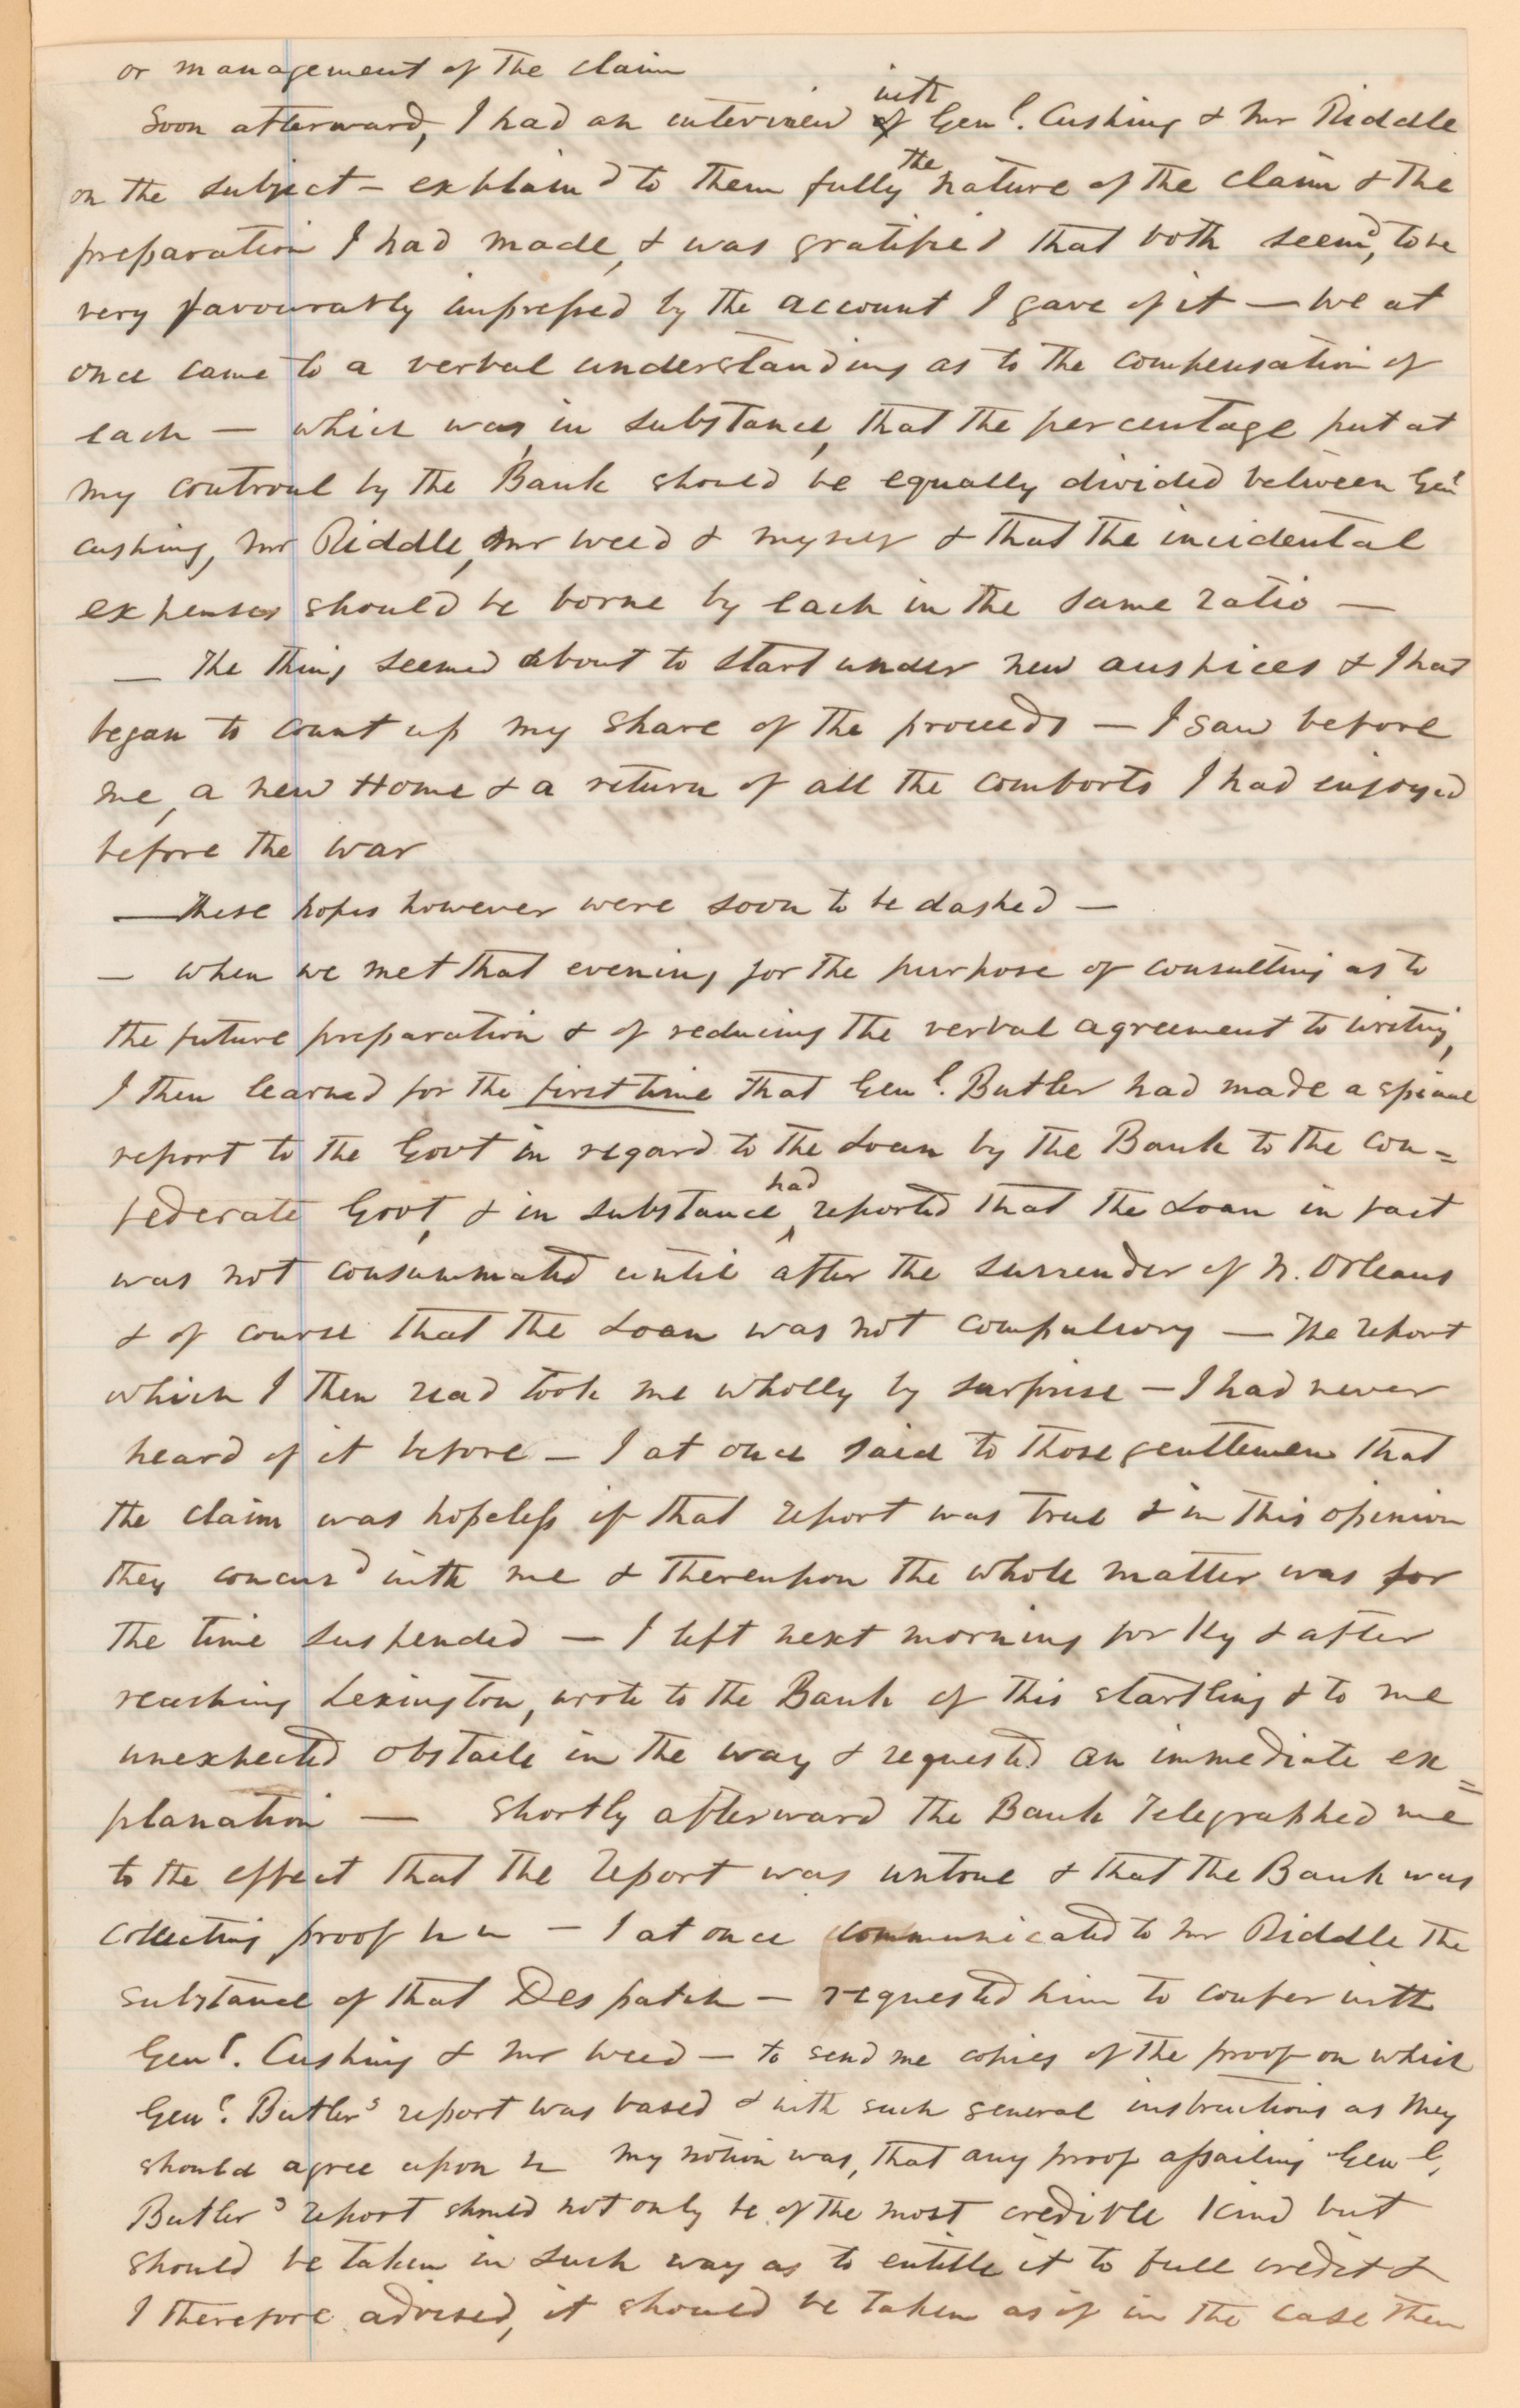 or management of the claim
Soon afterward, I had an interview with Genl. Cushing & Mr Riddle
on the subject – explaind to them fully the nature of the claim & the
preparation I had made, & was gratified that both seemd, to be
very favourably impressed by the account I gave of it — We at
once came to a verbal understanding as to the compensation of
each — which was, in substance, that the percentage put at
my controul by the Bank should be equally divided between Genl
Cushing, Mr Riddle, Mr Weed & myself & that the incidental
expenses should be borne by each in the same ratio —
— The thing seemed about to start under new auspices & I had
began to count up my share of the proceeds — I saw before
me, a new Home & a return of all the comforts I had enjoyed
before the war
— These hopes however were soon to be dashed —
— When we met that evening for the purpose of consulting as to
the future preparation & of reducing the verbal agreement to writing,
I then learned for the first time that Genl. Butler had made a special
report to the Govt in regard to the Loan by the Bank to the Con=
federate Govt, & in substance had reported that the Loan in fact
was not consummated until after the surrender of N. Orleans
& of course that the Loan was not compulsory — The report
which I then read took me wholly by surprise – I had never
heard of it before – I at once said to those gentlemen that
the claim was hopeless if that report was true & in this opinion
they concurd with me & thereupon the whole matter was for
the time suspended — I left next morning for Ky & after
reaching Lexington, wrote to the Bank of this startling & to me
unexpected obstacle in the way & requested an immediate ex=
planation — Shortly afterward the Bank Telegraphed me
to the effect that the report was untrue & that the Bank was
collecting proof — I at once communicated to Mr Riddle the
substance of that Despatch – requested him to confer with
Genl. Cushing & Mr Weed – to send me copies of the proof on which
Genl. Butler's report was based & with such general instructions as they
should agree upon My notion was, that any proof assailing Genl.
Butler's report should not only be of the most credible kind but
should be taken in such way as to entitle it to full credit &
I therefore advised, it should be taken as if in the case then